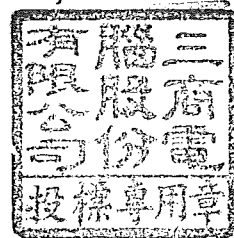 三商電
腦股份
有限公司
投標專用章